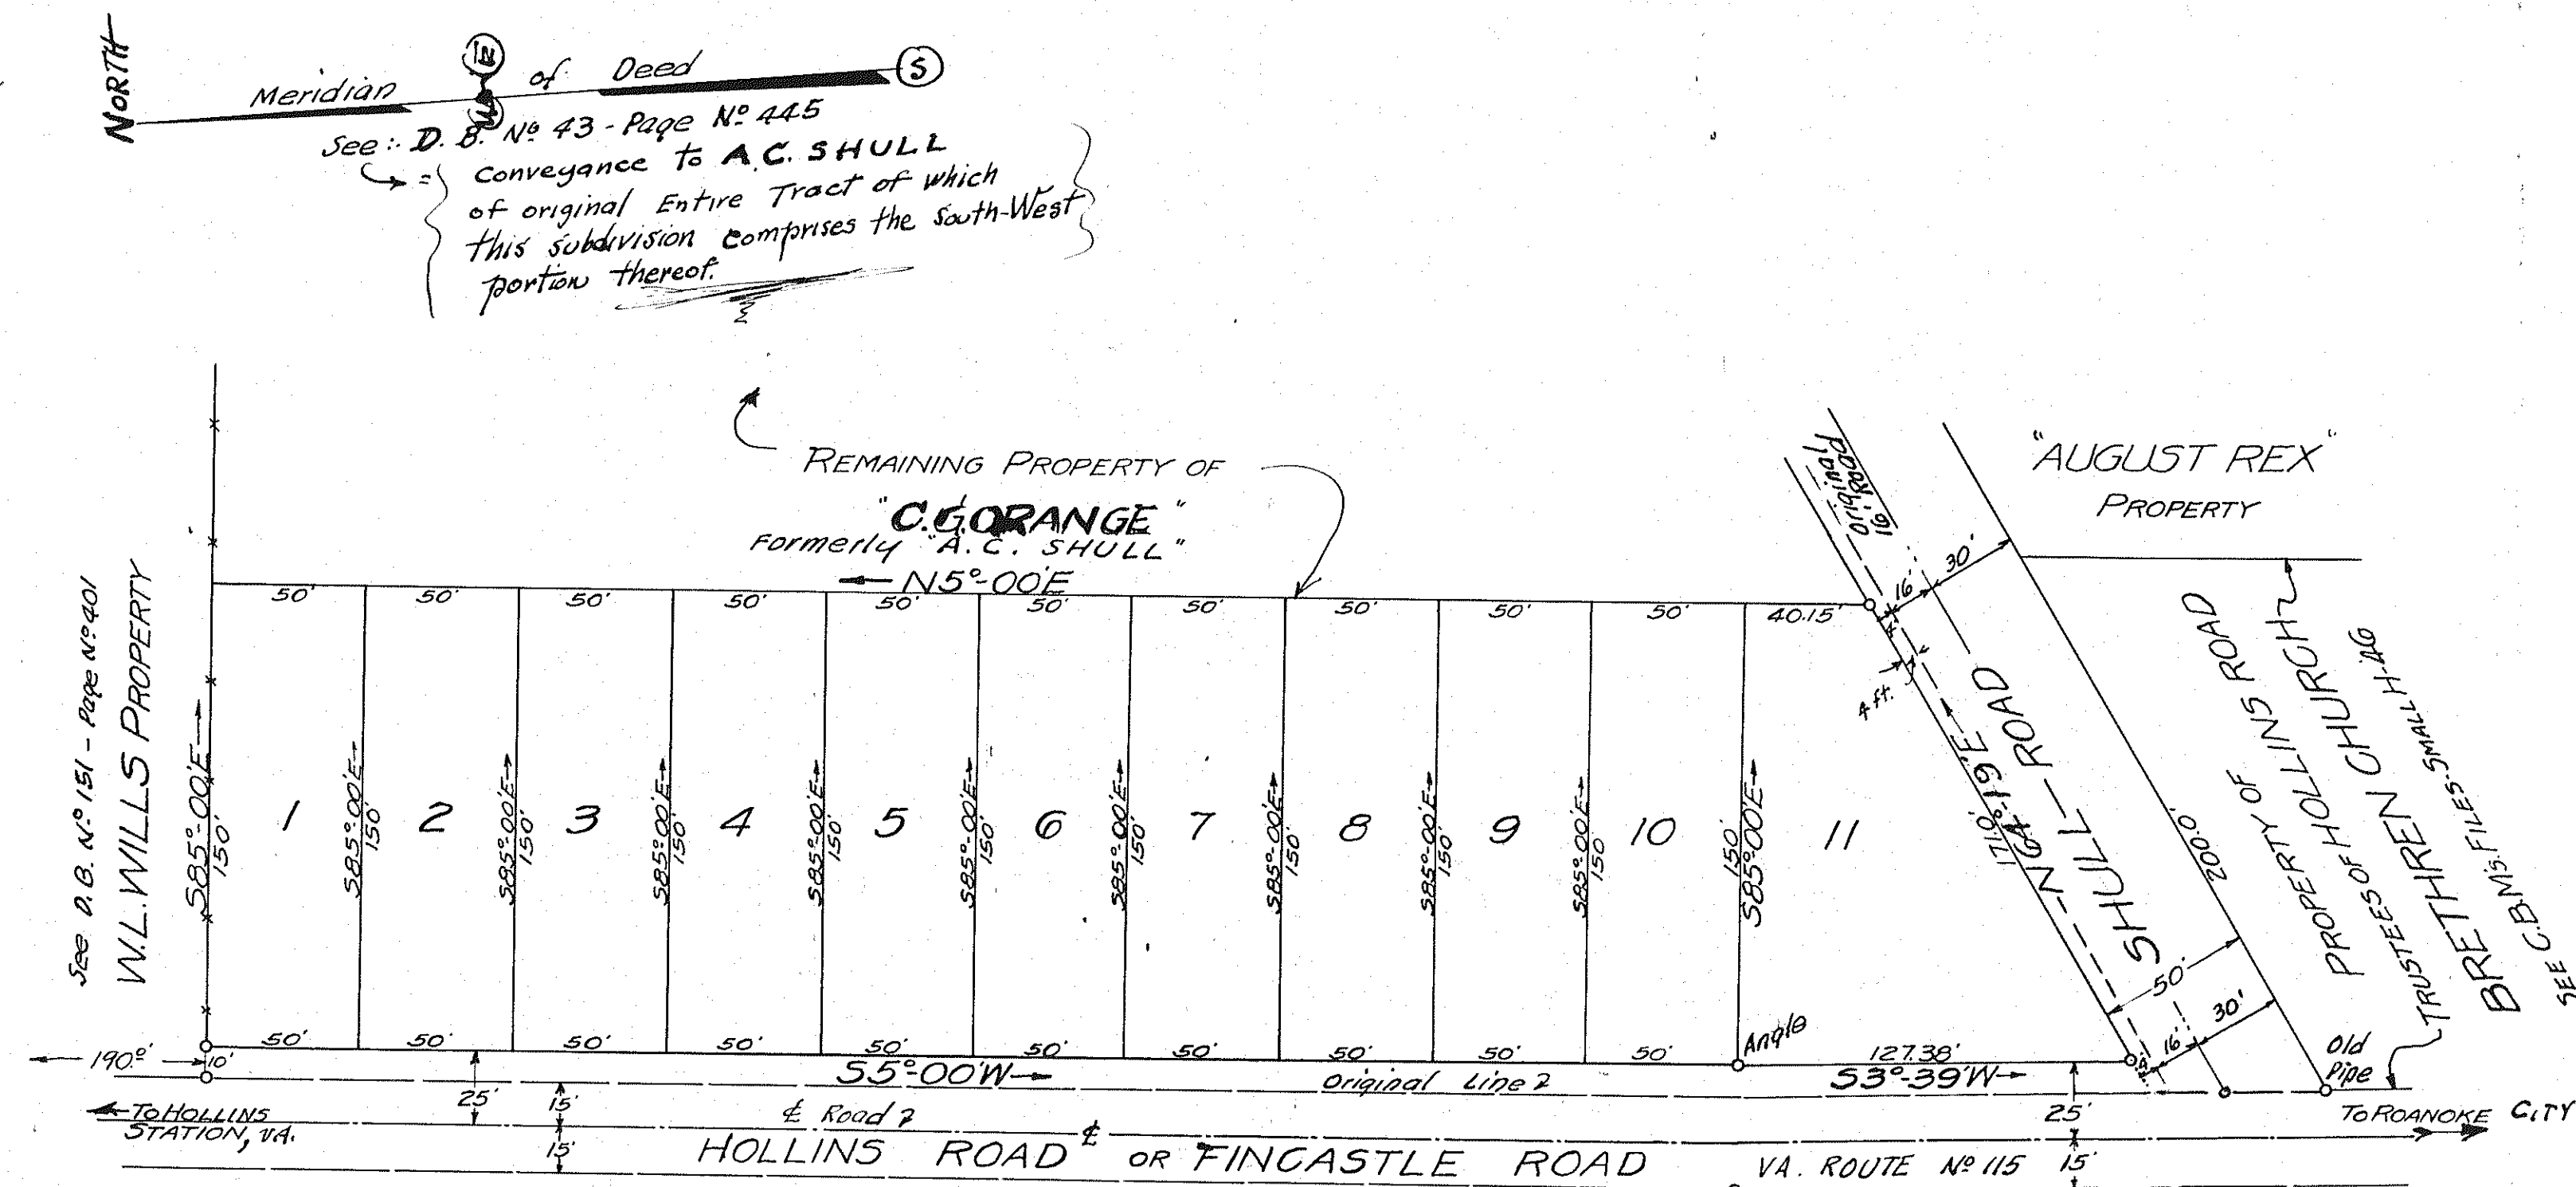 NORTH
Meridian of Deed
E
W
S
See: D. B. Nº 43 - Page Nº 445
Conveyance to A.C. SHULL
of original Entire Tract of which
this subdivision comprises the South-West
portion thereof.
REMAINING PROPERTY OF
"C.G. ORANGE"
Formerly "A.C. SHULL"
← N5°-00'E
"AUGUST REX"
PROPERTY
Original
16' ROAD
16' 30'
4'
4 ft.
See D.B. Nº 151 - Page Nº 401
W.L. WILLS PROPERTY
50' 50' 50' 50' 50' 50' 50' 50' 50' 50' 40.15'
S85°-00'E→
150'
1
S85°-00'E→
150'
2
S85°-00'E→
150'
3
S85°-00'E→
150'
4
S85°-00'E→
150'
5
S85°-00'E→
150'
6
S85°-00'E→
150'
7
S85°-00'E→
150'
8
S85°-00'E→
150'
9
S85°-00'E→
150'
10
150'
S85°-00'E→
11
171.0'
N64°-19'E
SHULL ROAD
200.0'
PROPERTY OF
PROP HOLLINS ROAD
TRUSTEES OF HOLLINS ROAD
BRETHREN CHURCH
SEE C.B.M's. FILES. SMALL H-46
50'
16' 30'
4'
Old
Pipe
50' 50' 50' 50' 50' 50' 50' 50' 50' 50' Angle 127.38'
← 190.0' 10'
S5°-00'W→
Original Line
S3°-39'W→
25' 15' ℄ Road
15'
25'
15'
←TO HOLLINS
STATION, VA.
TO ROANOKE CITY
HOLLINS ROAD ℄ OR FINCASTLE ROAD VA. ROUTE Nº 115